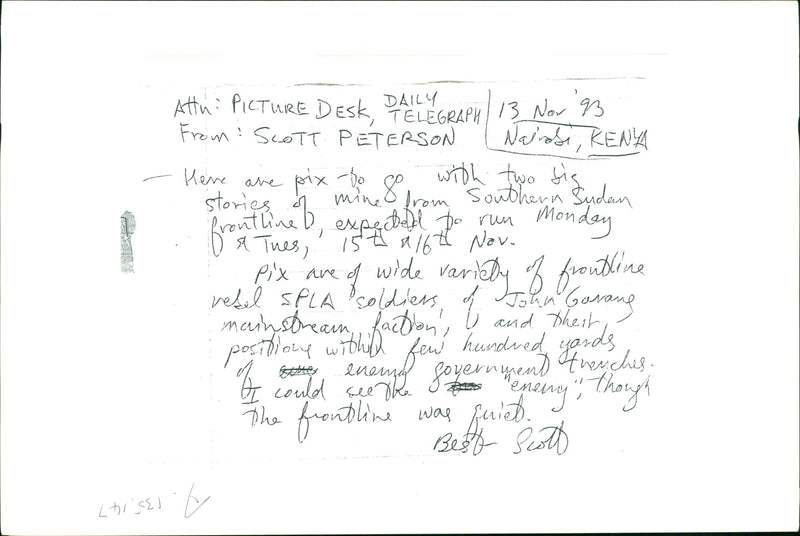 Attn: PICTURE DESK, DAILY TELEGRAPH
13 Nov '93
From: SCOTT PETERSON
Nairobi, KENYA
— Here are pix to go with two big
stories of mine from Southern Sudan
frontline, expected to run Monday
& Tues, 15th & 16th Nov.
Pix are of wide variety of frontline
rebel SPLA soldiers, of John Garang
'mainstream faction', and their
positions within few hundred yards
of enemy government trenches.
I could see the "enemy", though
the frontline was quiet.
Best Scott
135.147